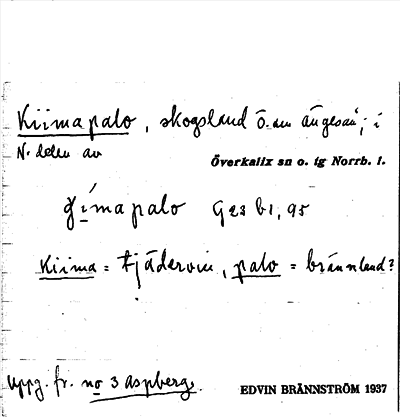 Kiimapalo, skogsland Ö. om ängesån; i
N. delen av
Överkalix sn o. tg Norrb. l.
gímapalo Ges b1, 95
Kiima = tjädervin, palo = brännland?
Uppg. fr. no 3 Aspberg.
EDVIN BRÄNNSTRÖM 1937